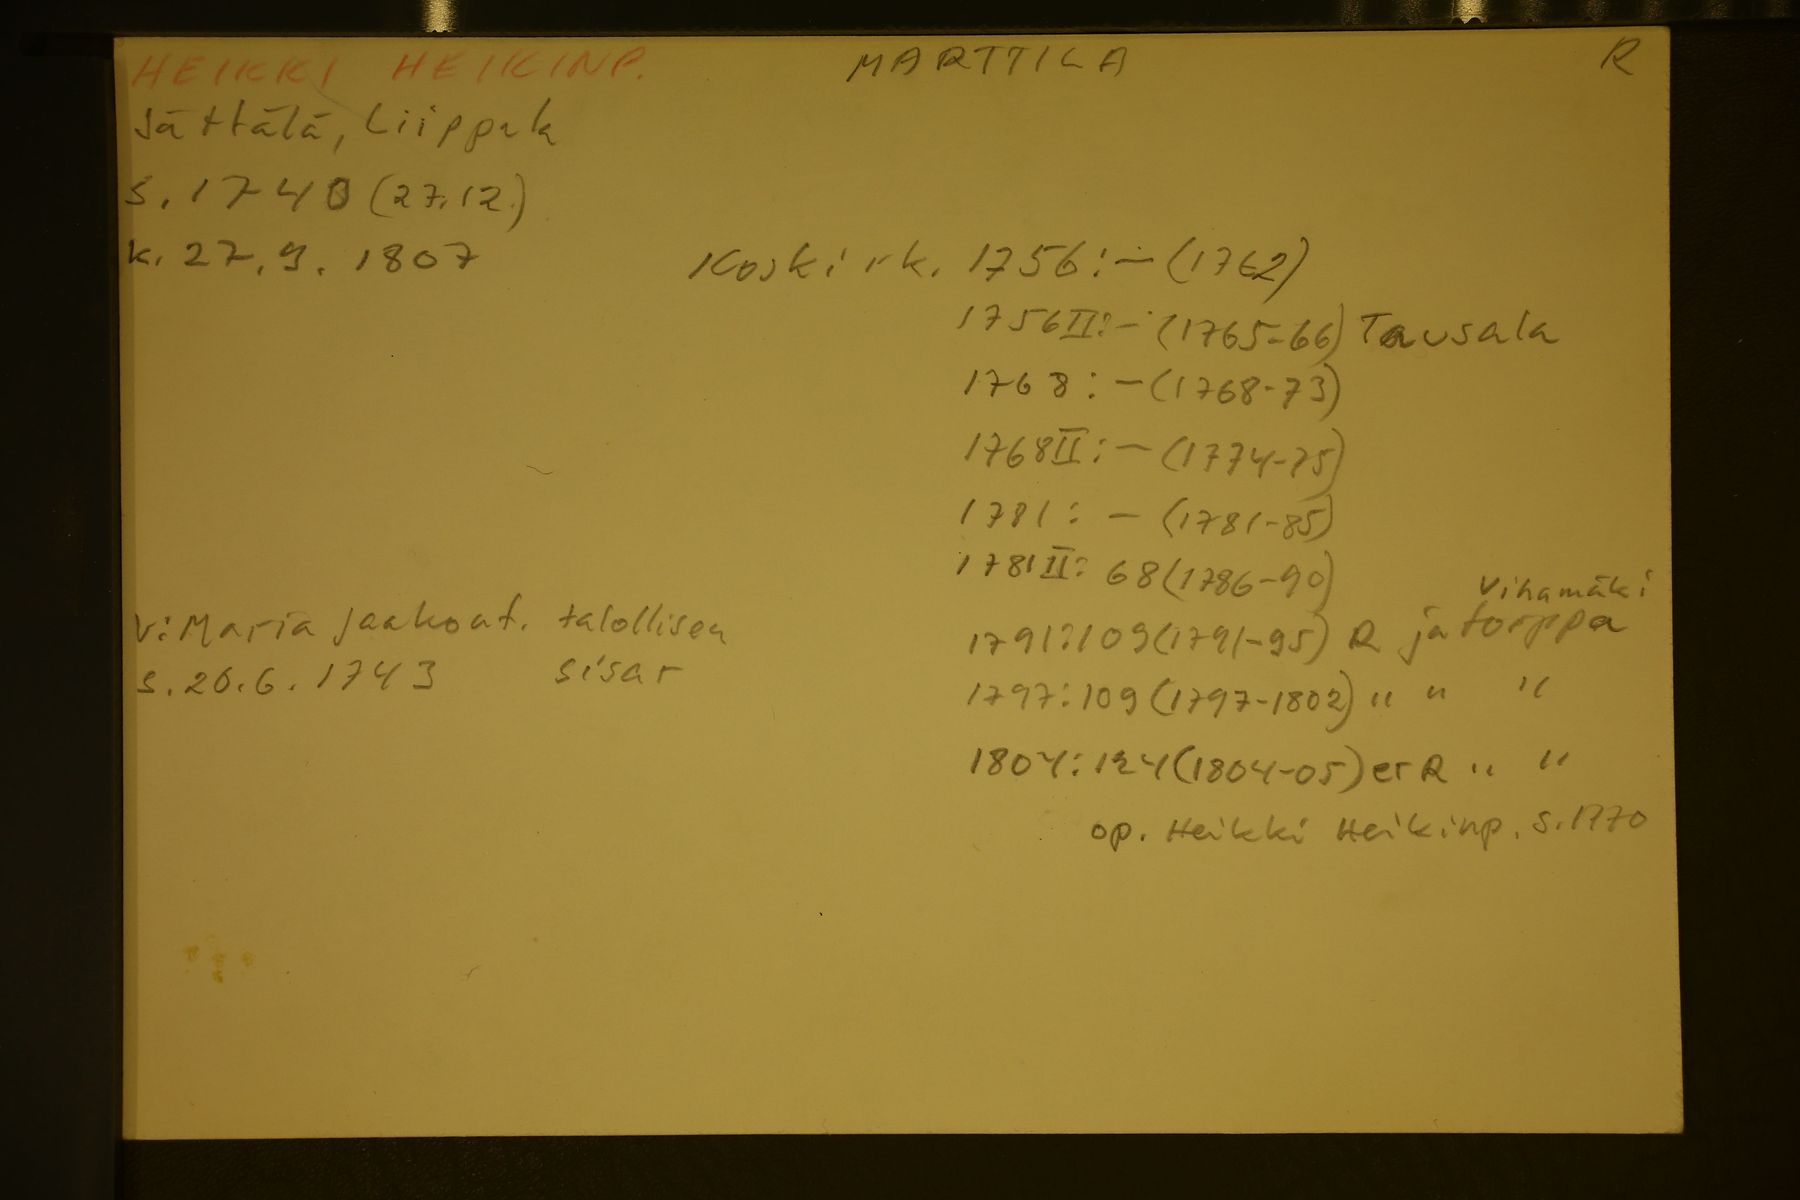 HEIKKI HEIKINP. MARTTILA R
Sättälä, Liippak
s. 1740 (27.12.)
k. 27.9.1807
Koski rk. 1756: – (1762)
1756II: – (1765-66) Tausala
1768: – (1768-73)
1768II: – (1774-75)
1781: – (1781-85)
1781II: 68 (1786-90)
Vihamäki
V: Maria Jaakont. talollisen
1791: 109 (1791-95) R ja torppa
s. 26.6.1743 sisar
1797: 109 (1797-1802) " " "
1804: 124 (1804-05) er R " "
op. Heikki Heikinp. s. 1770